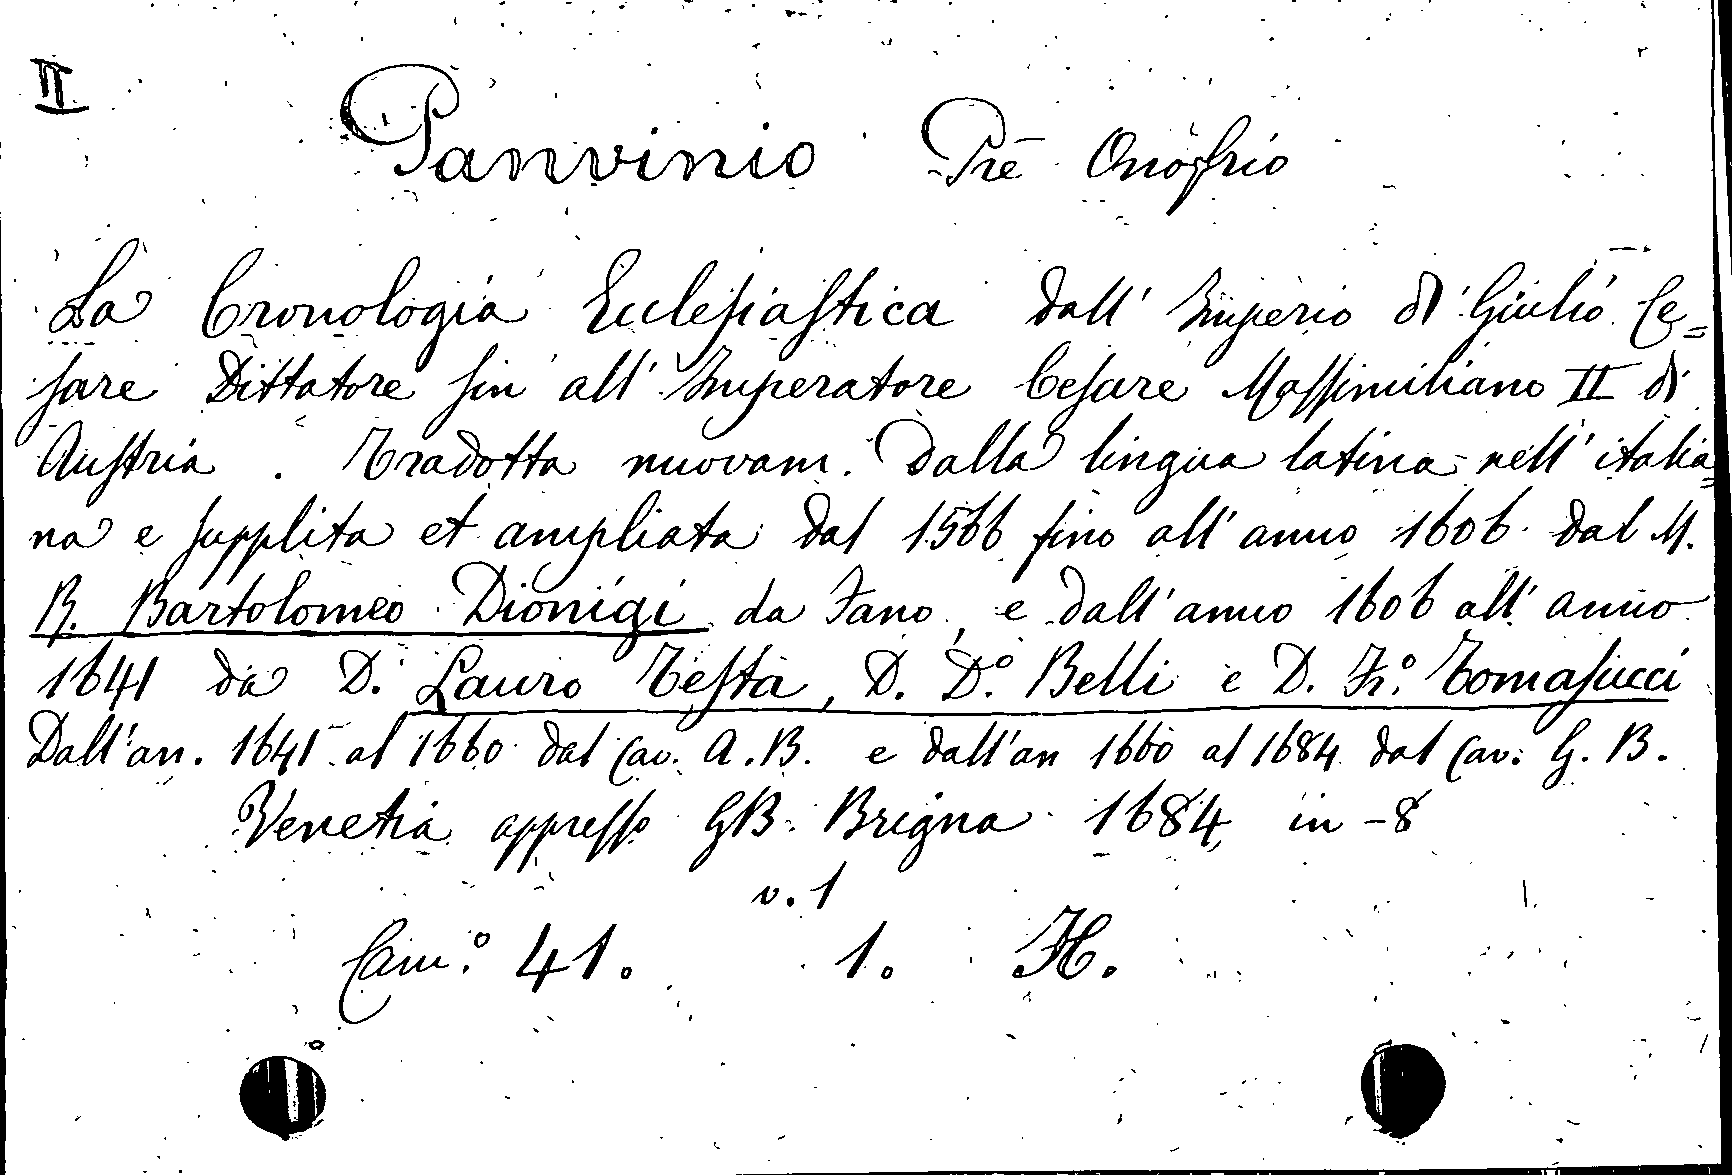 II
Panvinio Pre Onofrio
La Cronologia Ecclesiastica dall' Imperio di Giulio Ce=
sare Dittatore sin all' Imperatore Cesare Massimiliano II di
Austria . Tradotta nuovam. dalla lingua latina nell' italia=
na e supplita et ampliata dal 1566 fino all' anno 1606 dal M.
R. Bartolomeo Dionigi da Fano, e dall' anno 1606 all' anno
1641 da D. Lauro Testa, D. D.º Belli e D. Fr.º Tomasucci
Dall' an. 1641 al 1660 dal Cav. A. B. e dall' an 1660 al 1684 dal Cav: G. B.
Venetia appresso GB. Brigna 1684 in -8
v. 1
Cam:º 41. 1. H.